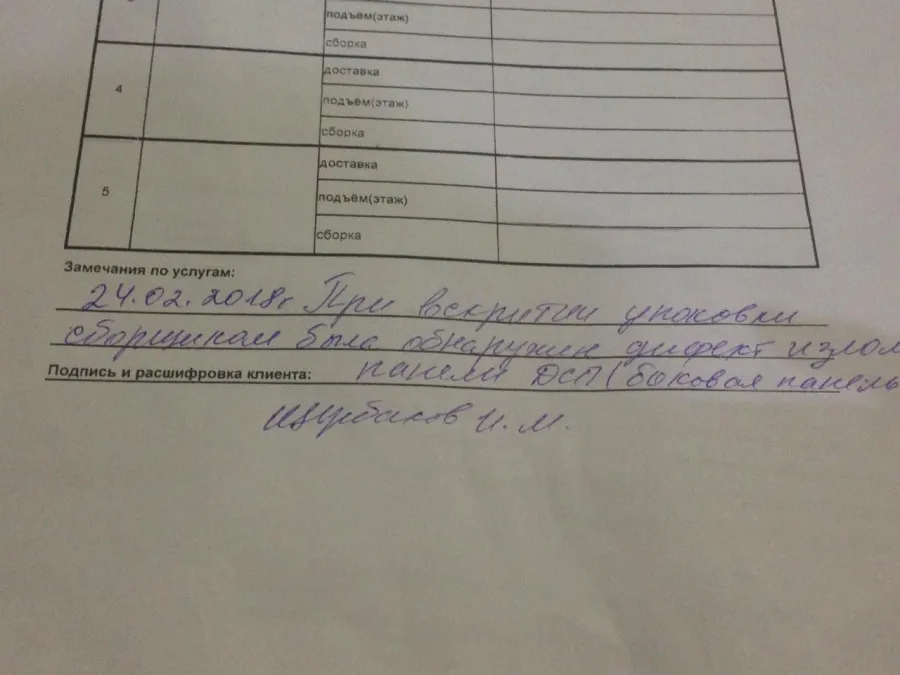 подъём(этаж)
сборка
4
доставка
подъём(этаж)
сборка
5
доставка
подъём(этаж)
сборка
Замечания по услугам:
24.02.2018г При вскритии упаковки
сборщиком была обнаружин дифект излом
Подпись и расшифровка клиента: панели ДСП (боковая панель
И.М.